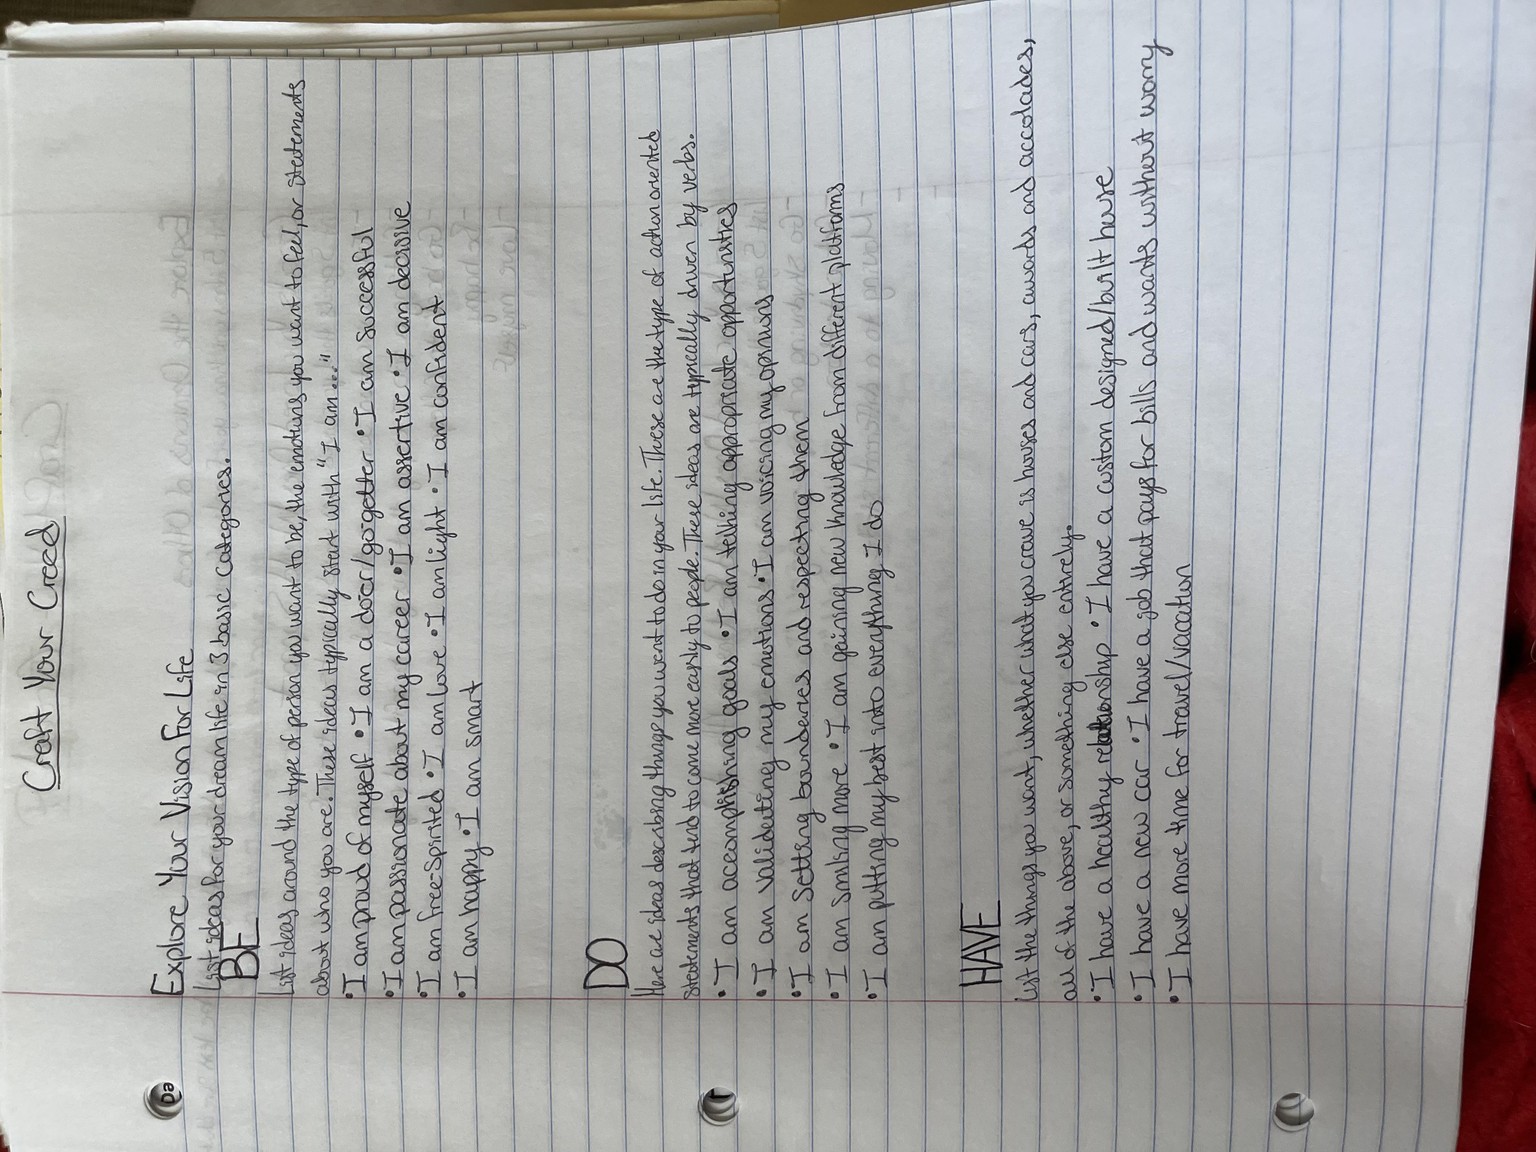 Craft Your Creed
Explore Your Vision For Life
List ideas for your dream life in 3 basic categories.
BE
List ideas around the type of person you want to be, the emotions you want to feel, or statements
about who you are. These ideas typically start with "I am..."
• I am proud of myself • I am a doer/go-getter • I am successful
• I am passionate about my career • I am assertive • I am decisive
• I am free-spirited • I am love • I am light • I am confident
• I am happy • I am smart
DO
Here are ideas describing things you want to do in your life. These are the type of action oriented
statements that tend to come more easily to people. These ideas are typically driven by verbs.
• I am accomplishing goals • I am telling appropriate opportunities
• I am validating my emotions • I am voicing my opinions
• I am setting bounderies and respecting them
• I am smiling more • I am gaining new knowledge from different platforms
• I am putting my best into everything I do
HAVE
List the things you want, whether what you crave is houses and cars, awards and accolades,
all of the above, or something else entirely.
• I have a healthy relationship • I have a custom designed/built house
• I have a new car • I have a job that pays for bills and wants without worry
• I have more time for travel/vacation
Da